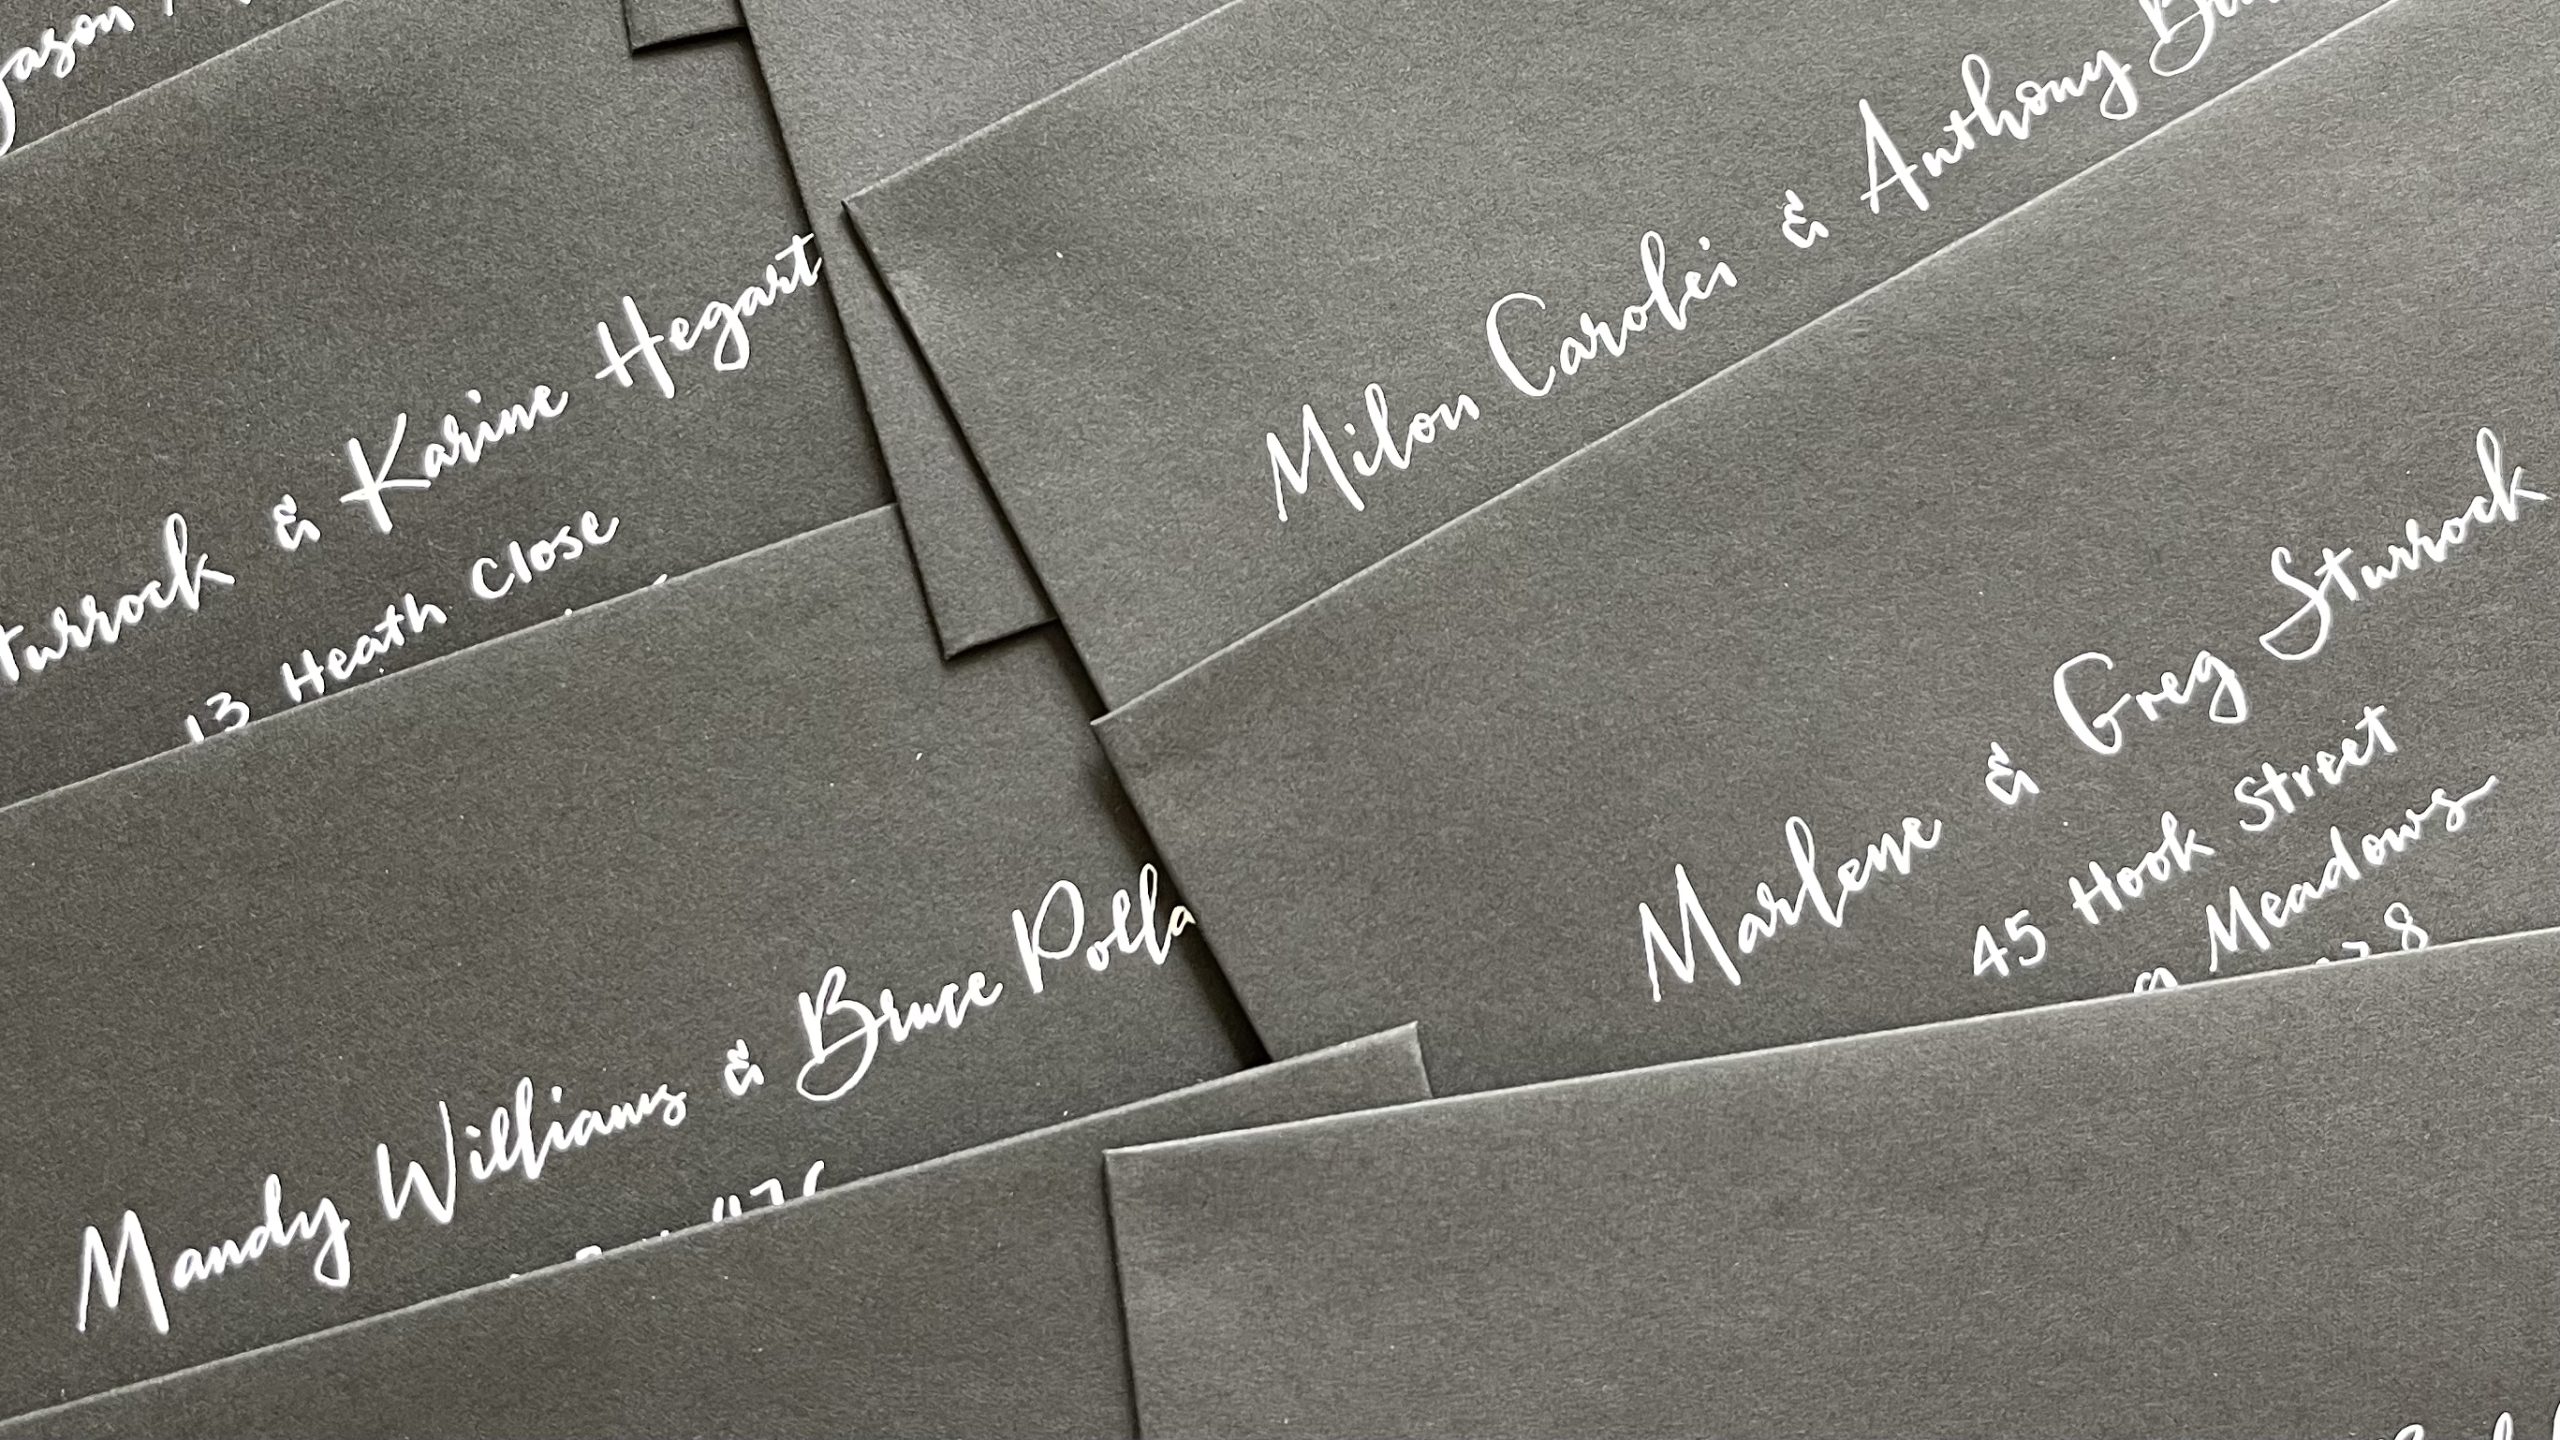 Jason
turrock & Karine Hegart
13 Heath Close
Milon Carolei & Anthony
Marlene & Greg Sturrock
45 Hook Street
Meadows
Mandy Williams & Bruce Polla